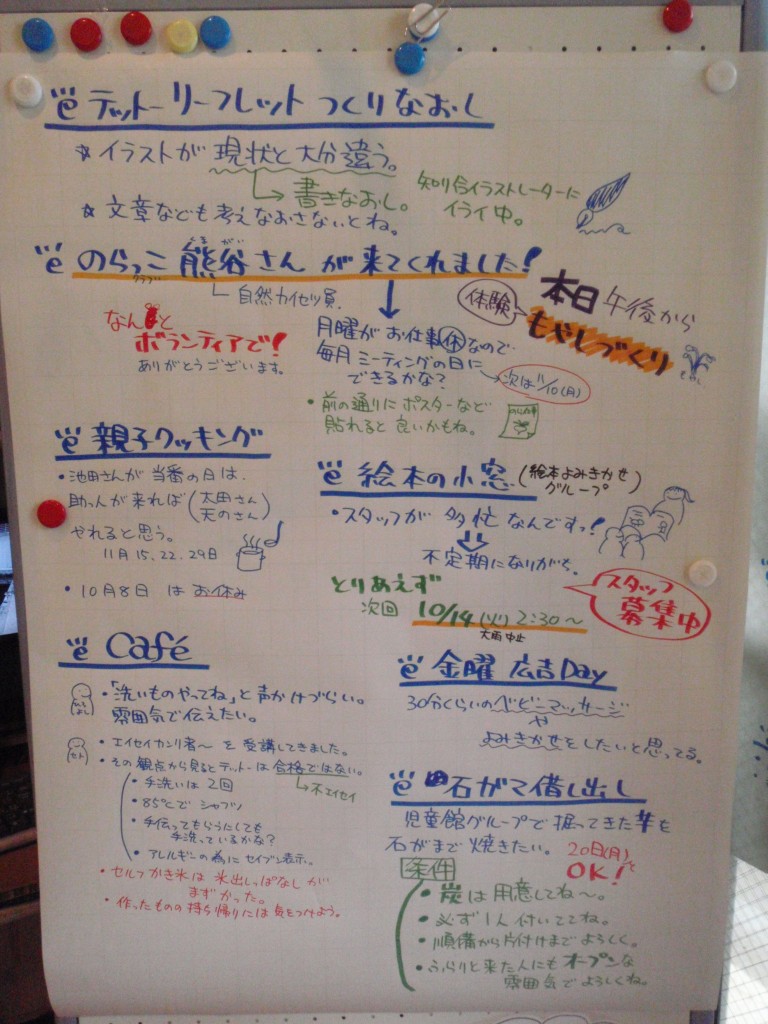 ë テットーリーフレット つくりなおし
☆イラストが 現状と大分違う。
→書きなおし。
知り合イラストレーターに
イライ中。
☆文章なども考えなおさないとね。
ë のらっこ 熊谷さん が 来てくれました!
くまがい
クラブ
自然カイセツ員
なんと
ボランティアで!
ありがとうございます。
月曜がお仕事休なので
毎月ミーティングの日に
できるかな?
次は11/10(月)
・前の通りにポスターなど
貼れると良いかもね。
体験
本日午後から
もやしづくり
ë 親子クッキング
・池田さんが当番の日は、
助っ人が来れば(太田さん
天のさん)
やれると思う。
11月15、22、29日
・10月8日はお休み
ë 絵本の小窓(絵本よみきかせ
グループ)
・スタッフが多忙なんですっ!
不定期になりがち。
とりあえず
次回 10/14(火)2:30〜
大雨中止
スタッフ
募集中
ë Café
・「洗いものやってね」と声かけづらい。
雰囲気で伝えたい。
・エイセイカンリ者〜を受講してきました。
・その観点から見るとテットーは合格ではない。
→不エイセイ
・手洗いは2回
・85℃でシャブツ
・手伝ってもらうにしても
手洗っているかな?
・アレルギンの為にセイブン表示。
・セルフかき氷は氷出しっぱなしが
まずかった。
・作ったものの持ち帰りには気をつけよう。
ë 金曜 広吉Day
30分くらいのベビーマッサージ
や
よみきかせをしたいと思ってる。
ë 石ガマ借し出し
児童館グループで掘ってきた芋を
石がまで焼きたい。
20日(月)で
OK!
条件
・炭は用意してね〜。
・必ず1人付いててね。
・順備から片付けまでよろしく。
・ふらりと来た人にもオープンな
雰囲気でよろしくね。